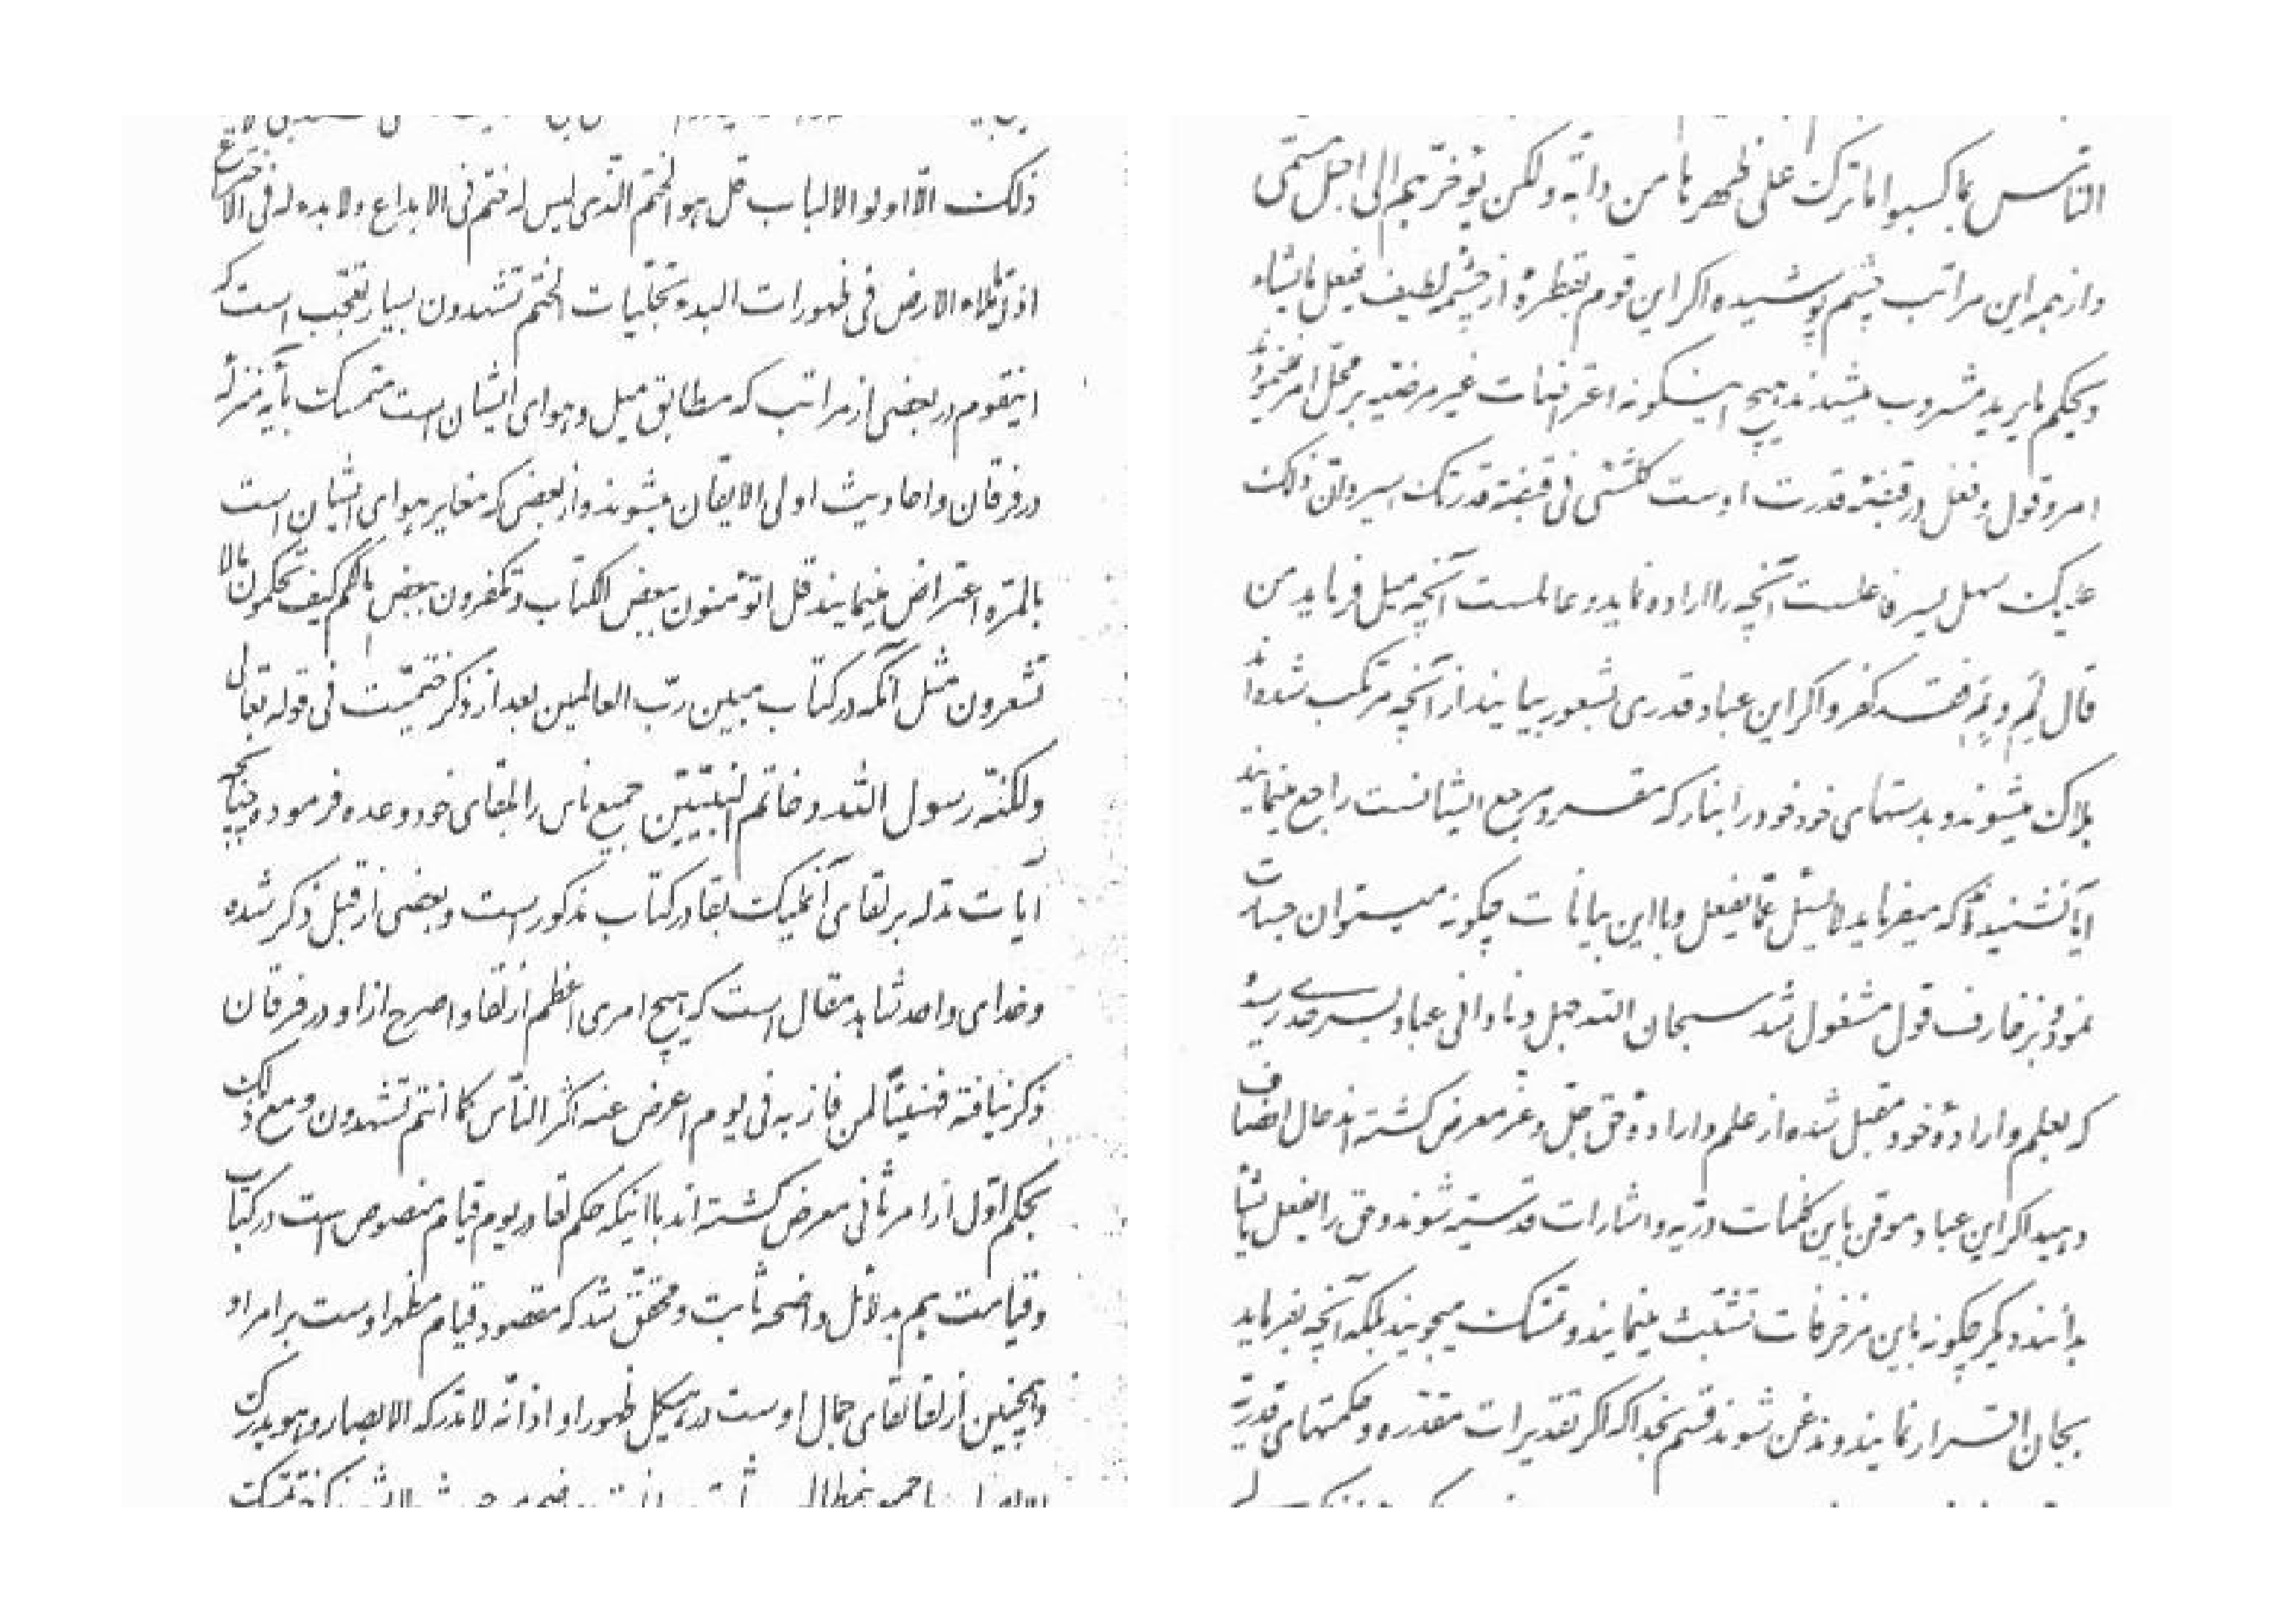 الناس بما کسبوا ما ترک علی ظهرها من دابّة ولکن یؤخّرهم الی اجل مسمّی
و از همه این مراتب چشم پوشیده اکر این قوم بقطرهٔ از چشمه لطیف یفعل مایشاء
و یحکم مایرید مشروب میشدند هیچ اینکونه اعتراضات غیر مرضیّه بر محلّ امر نمینمودند
امر و قول و فعل در قبضهٔ قدرت اوست کلشئی فی قبضة قدرته اسیر و انّ ذلک
علیه سهل یسیر فاعلست آنچه را اراده نماید و عاملست آنچه میل فرماید من
قال لم و بم فقد کفر و اکر این عباد قدری بشعور بیایند از آنچه مرتکب شده‌اند
هلاک میشوند و بدستهای خود خود را بنار که مقر و مرجع ایشانست راجع مینمایند
آیا نشنیده‌اند که میفرماید لایسئل عمّا یفعل و با این بیانات چکونه میتوان جسارت
نمود و بزخارف قول مشغول شد سبحان الله جهل و نادانی عباد بسرحدّی رسیده
که بعلم و ارادهٔ خود مقبل شده از علم و ارادهٔ حق جلّ و عزّ معرض کشته‌اند حال انصاف
دهید اکر این عباد موقن باین کلمات درّیه و اشارات قدسیّه شوند و حق را یفعل مایشاء
بدانند دیکر چکونه باین مزخرفات تشبّث مینمایند و تمسّک میجویند بلکه آنچه بفرماید
بجان اقرار نمایند و مذعن شوند قسم بخدا که اکر تقدیرات مقدّره و حکمتهای قدریّه
ذلک الّا اولوالالباب قل هو الختم الّذی لیس له ختم فی الابداع ولا بدء له فی الاختراع
اذاً یاملاء الارض فی ظهورات البدء تجلّیات الختم تشهدون بسیار تعجّب است که
اینقوم در بعضی از مراتب که مطابق میل و هوای ایشان است متمسّک بآیه منزله
در فرقان و احادیث اولی الایقان میشوند و از بعضی که مغایر هوای ایشان است
بالمرّه اعتراض مینمایند قل اتؤمنون ببعض الکتاب و تکفرون ببعض مالکم کیف تحکمون مالا
تشعرون مثل آنکه در کتاب مبین ربّ العالمین بعد از ذکر ختمیّت فی قوله تعالی
ولکنّه رسول الله و خاتم النّبیّین جمیع ناس را بلقای خود وعده فرموده چنانچه
آیات مدلّه بر لقای آن ملیک بقا در کتاب مذکور است و بعضی از قبل ذکر شده
و خدای واحد شاهد مقال است که هیچ امری اعظم از لقا و اصرح از او در فرقان
ذکر نیافته فهنیئاً لمن فاز به فی یوم اعرض عنه اکثر النّاس کما انتم تشهدون و مع ذلک
بحکم اوّل از امر ثانی معرض کشته‌اند با اینکه حکم لقا در یوم قیام منصوص است در کتاب
و قیامت هم بدلائل واضحه ثابت و محقّق شد که مقصود قیام مظهر اوست بر امر او
و همچنین از لقا لقای جمال اوست در هیکل ظهور او اذ انّه لاتدرکه الابصار و هو یدرک